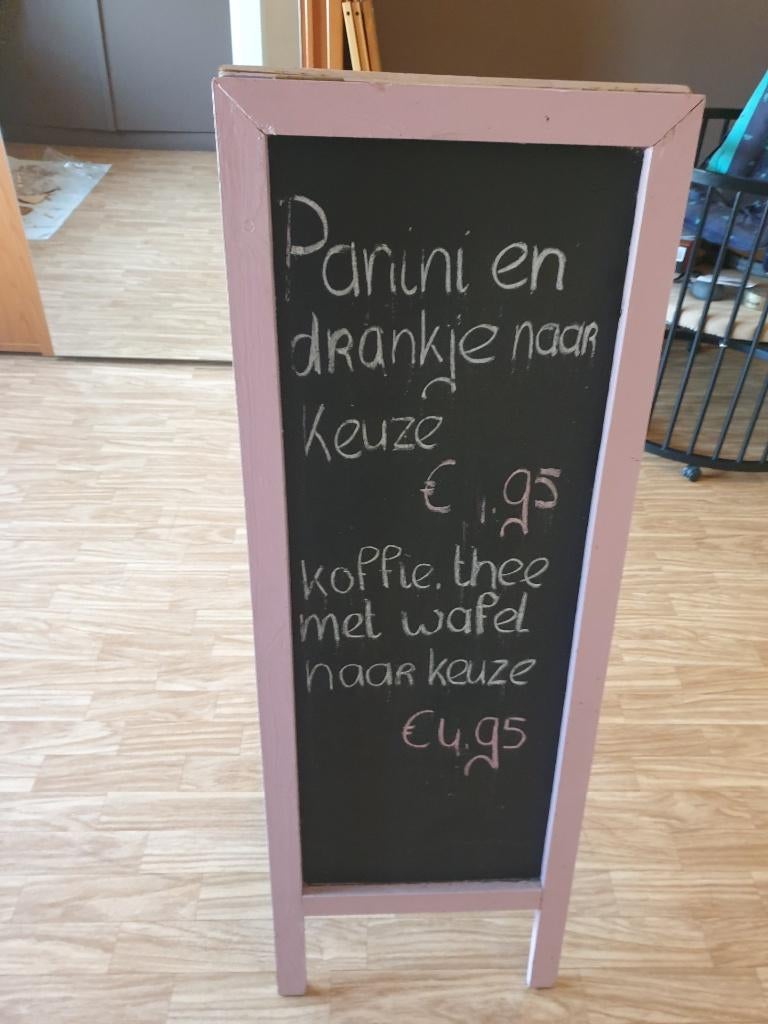 Panini en
drankje naar
keuze
€ 1.95
koffie. thee
met wafel
naar keuze
€4.95